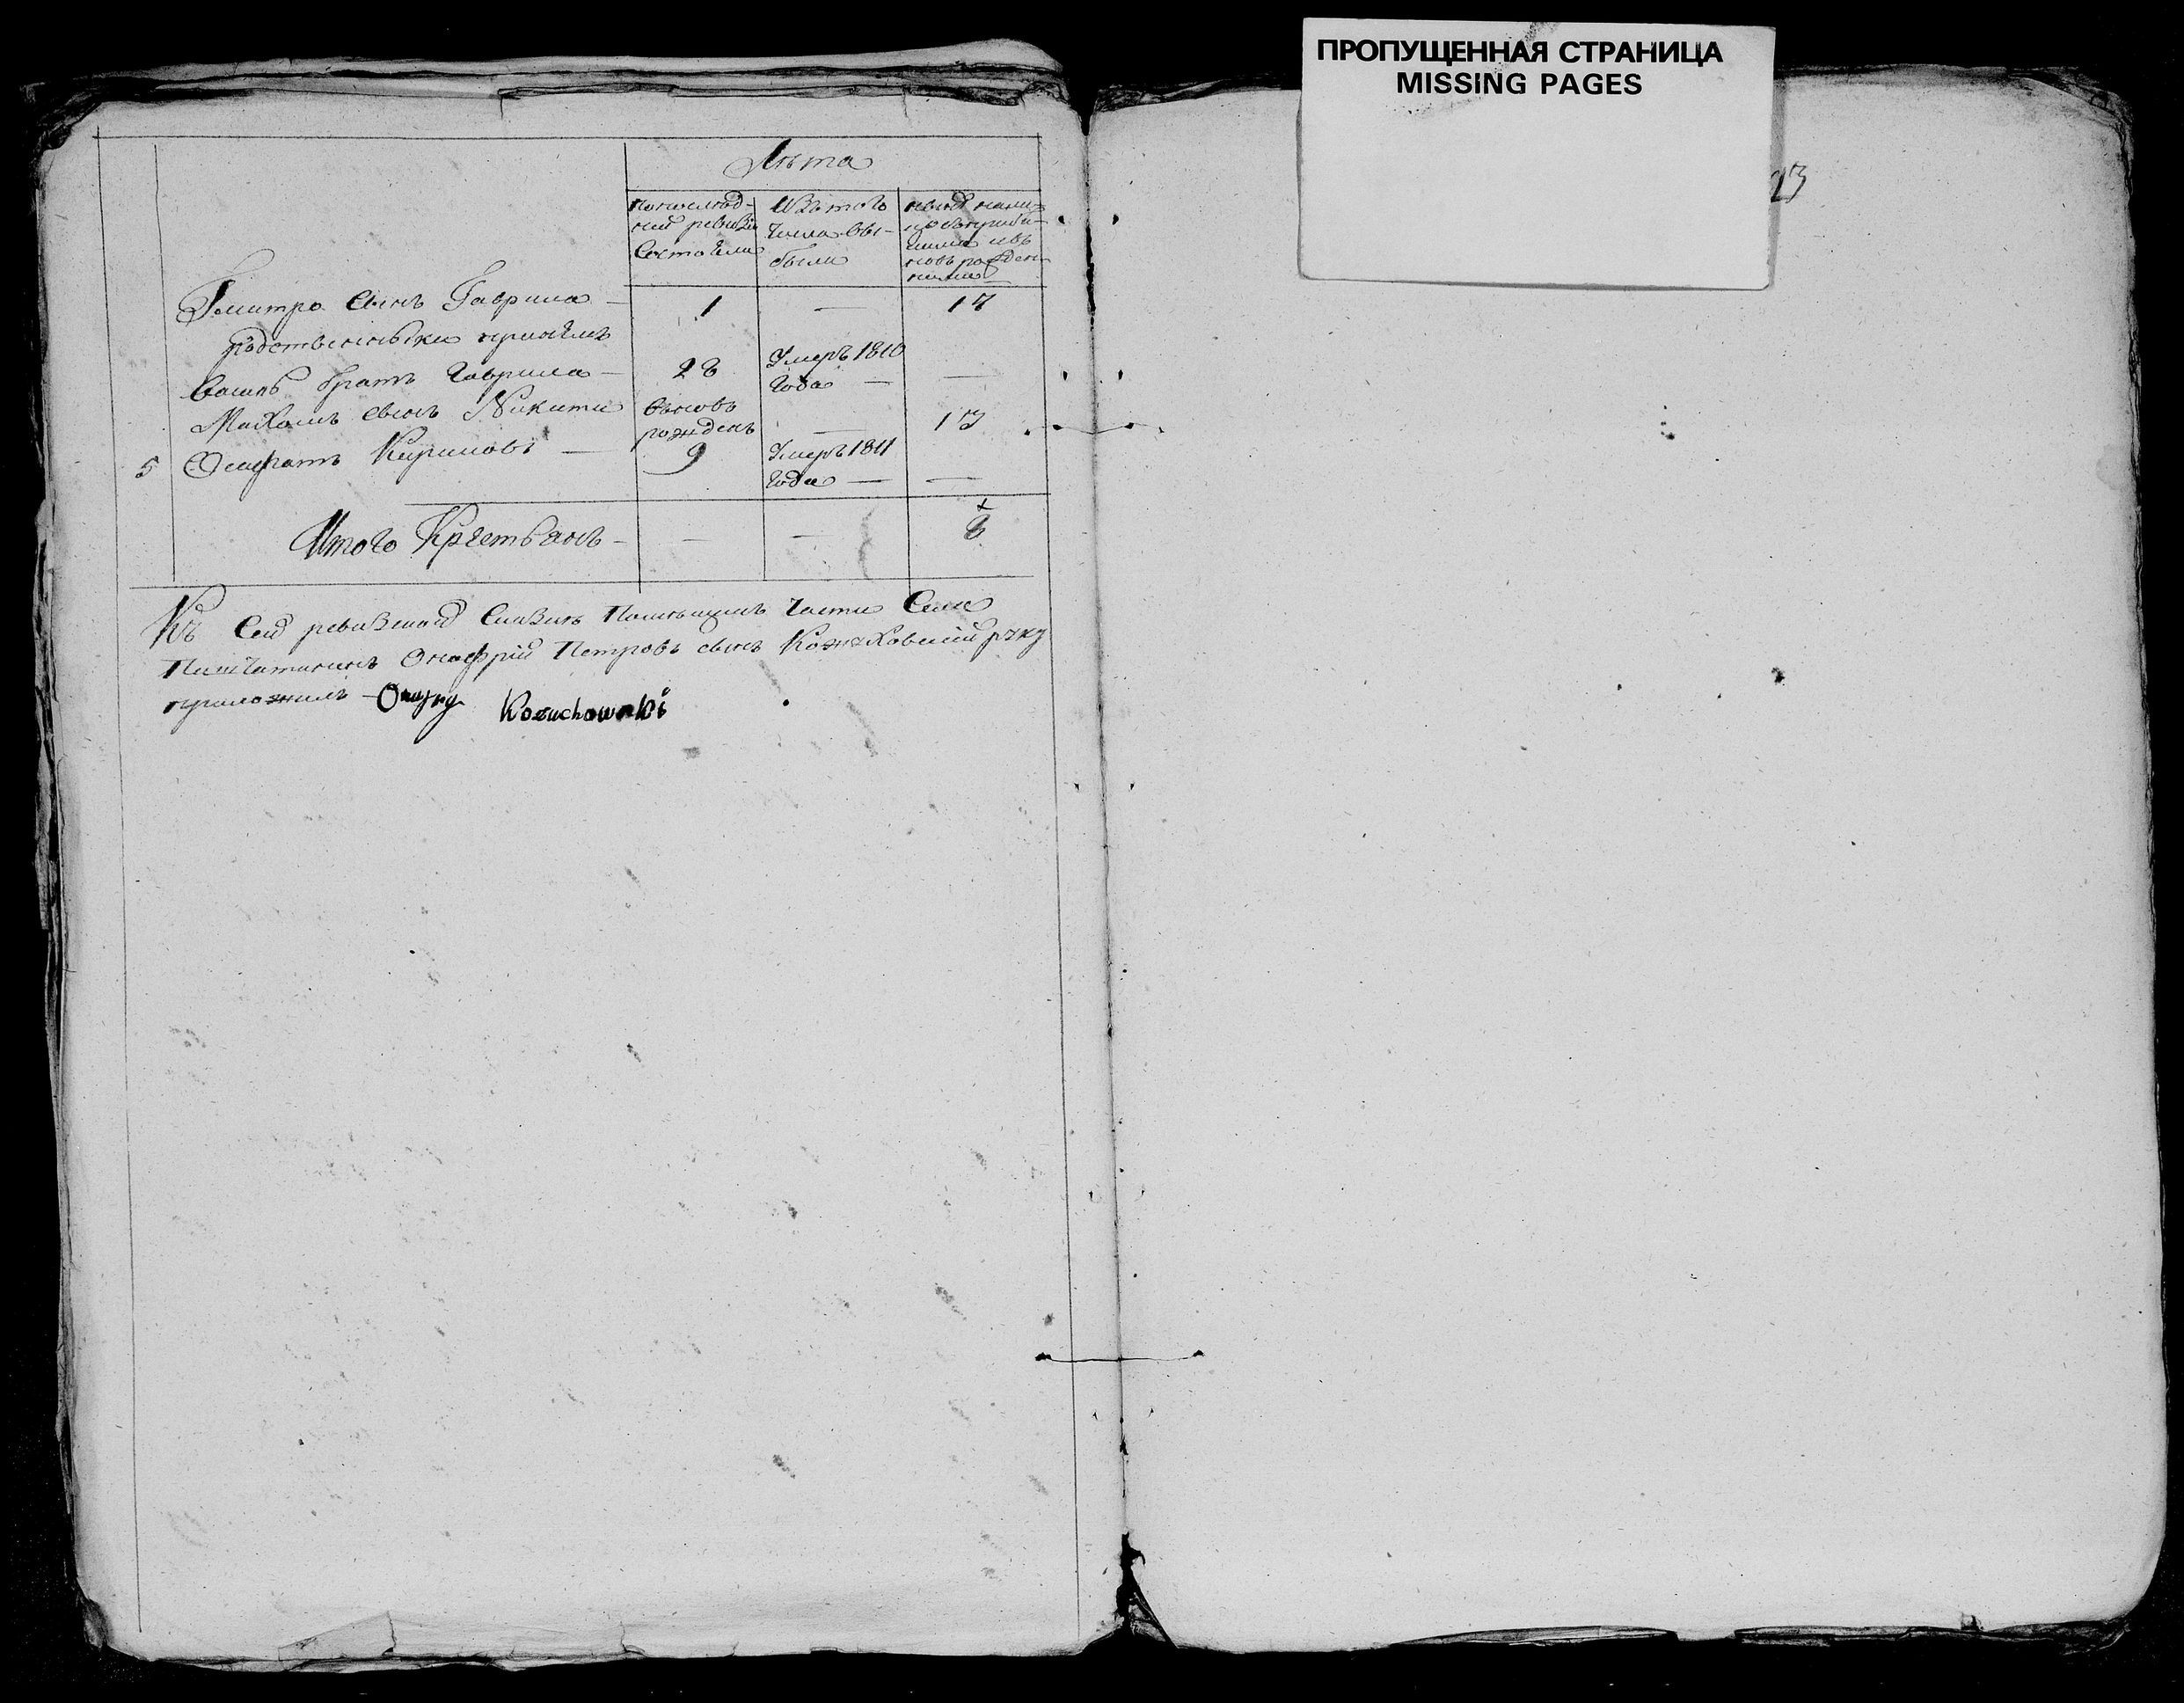 ПРОПУЩЕННАЯ СТРАНИЦА
MISSING PAGES
23
Лѣта
по послѣд-
ней ревизіи
состояли
Изъ того
числа вы-
были
нынѣ на ли-
цо
Дмитро сынъ Гаврила — 1 — 17
родственники
братъ Гаврила — 28 Умеръ 1810
года — —
сынъ Никити вновь
рожденъ — 13
5 Кириловъ — 9 Умеръ 1811
года — —
Итого Крестьянъ — — — 8
Къ сей ревизской Сказкѣ Помѣщикъ части Села
Онофрій Петровъ сынъ Кожуховскій руку
приложилъ — Onufry Kozuchowski